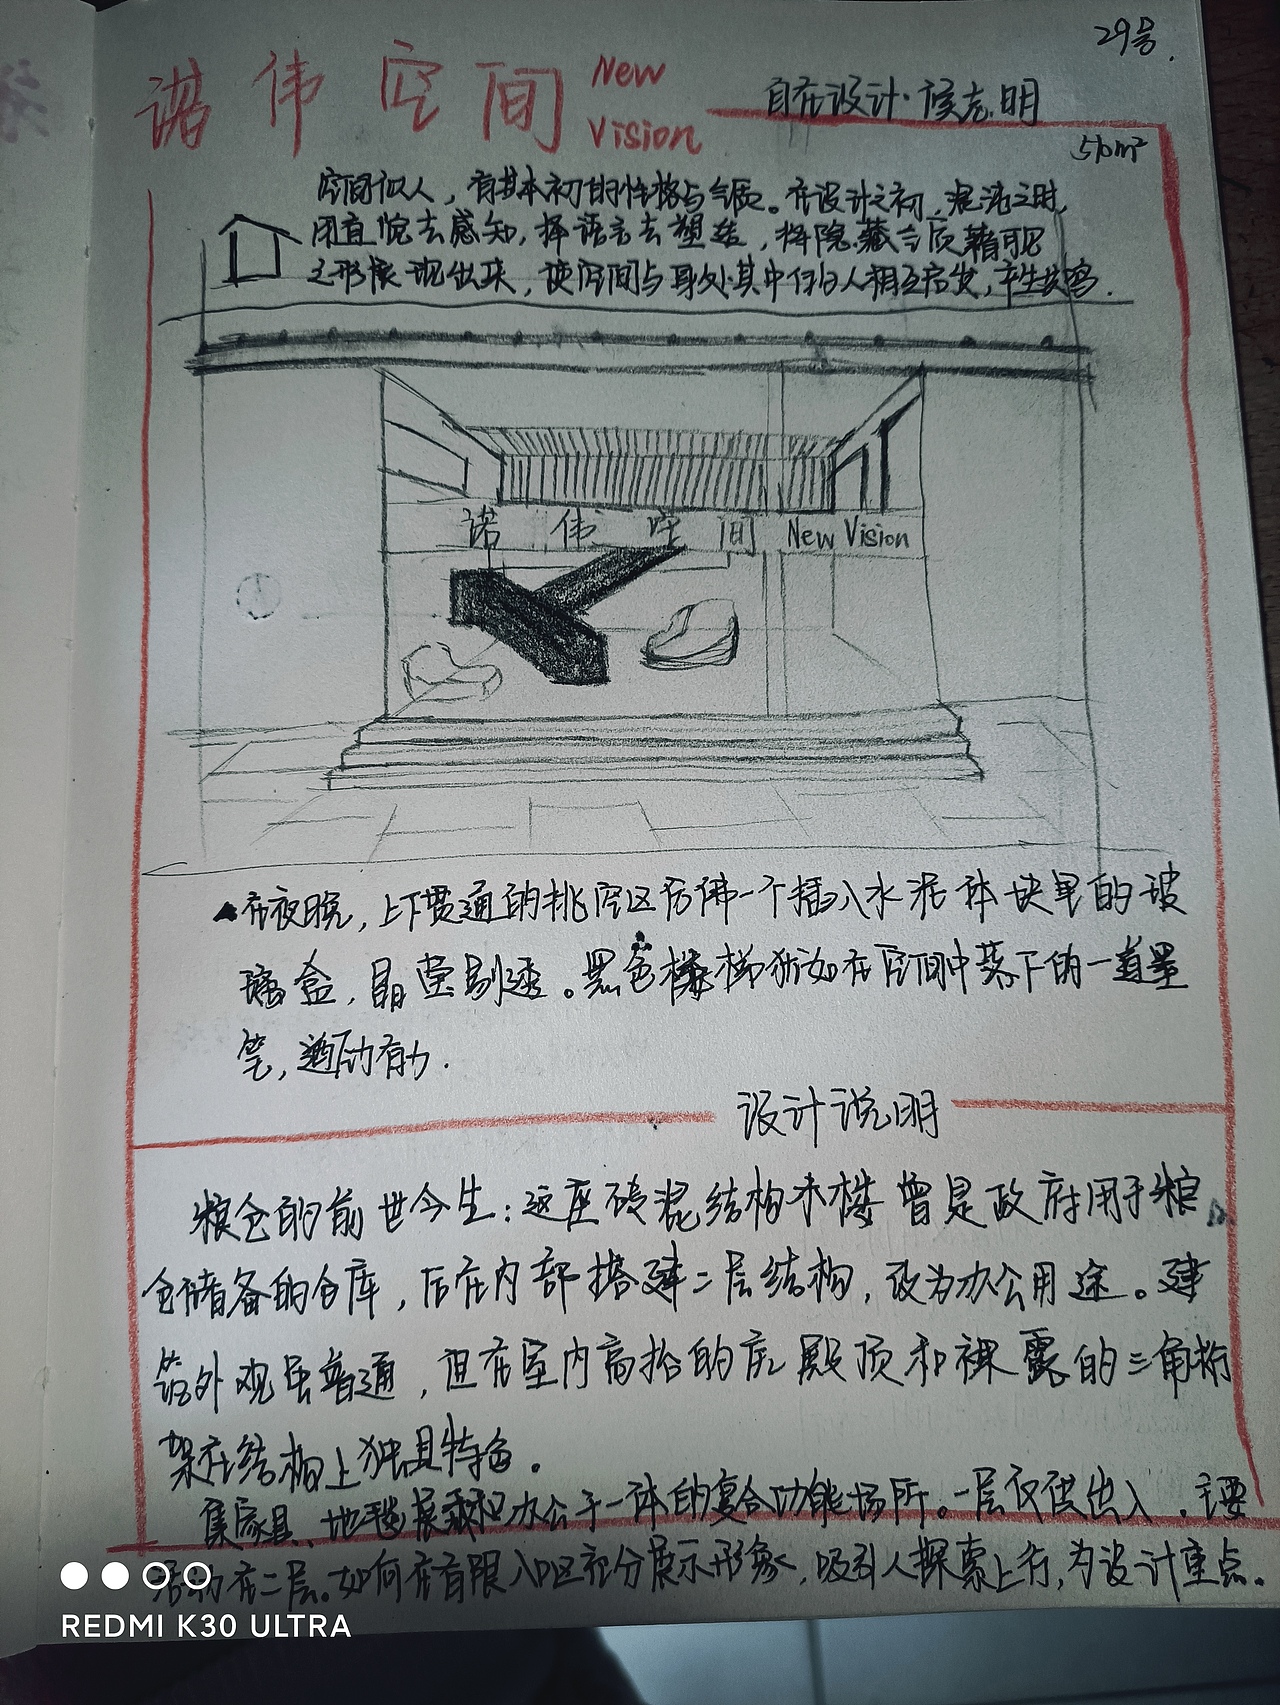 29号.
诺伟空间 New Vision
自在设计·侯志明
510m²
空间似人，有其本初的性格与气质。在设计之初，混沌之时，
用直觉去感知，择语言去塑造，将隐藏气质藉可见
之形展现出来，使空间与身处其中的人相互启发，产生共鸣.
诺伟空间 New Vision
在夜晚，上下贯通的挑空区仿佛一个插入水泥体块里的玻
璃盒，晶莹剔透。黑色楼梯犹如在空间中落下的一道墨
笔，遒劲有力.
设计说明
粮仓的前世今生：这座砖混结构小楼曾是政府用于粮
仓储备的仓库，后在内部搭建二层结构，改为办公用途。建
筑外观虽普通，但在室内高抬的庑殿顶和裸露的三角桁
架在结构上独具特色。
集家具、地毯展示和办公于一体的复合功能场所。一层仅供出入，主要
活动在二层。如何在有限入口区充分展示形象，吸引人探索上行，为设计重点。
REDMI K30 ULTRA